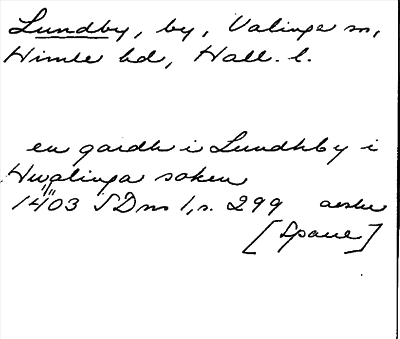 Lundby, by, Valinge sn,
Himle hd, Hall. l.
en gardh i Lundhby i
Hwalinga soken
1403 SDns 1, s. 299 avskr
[Spaue]